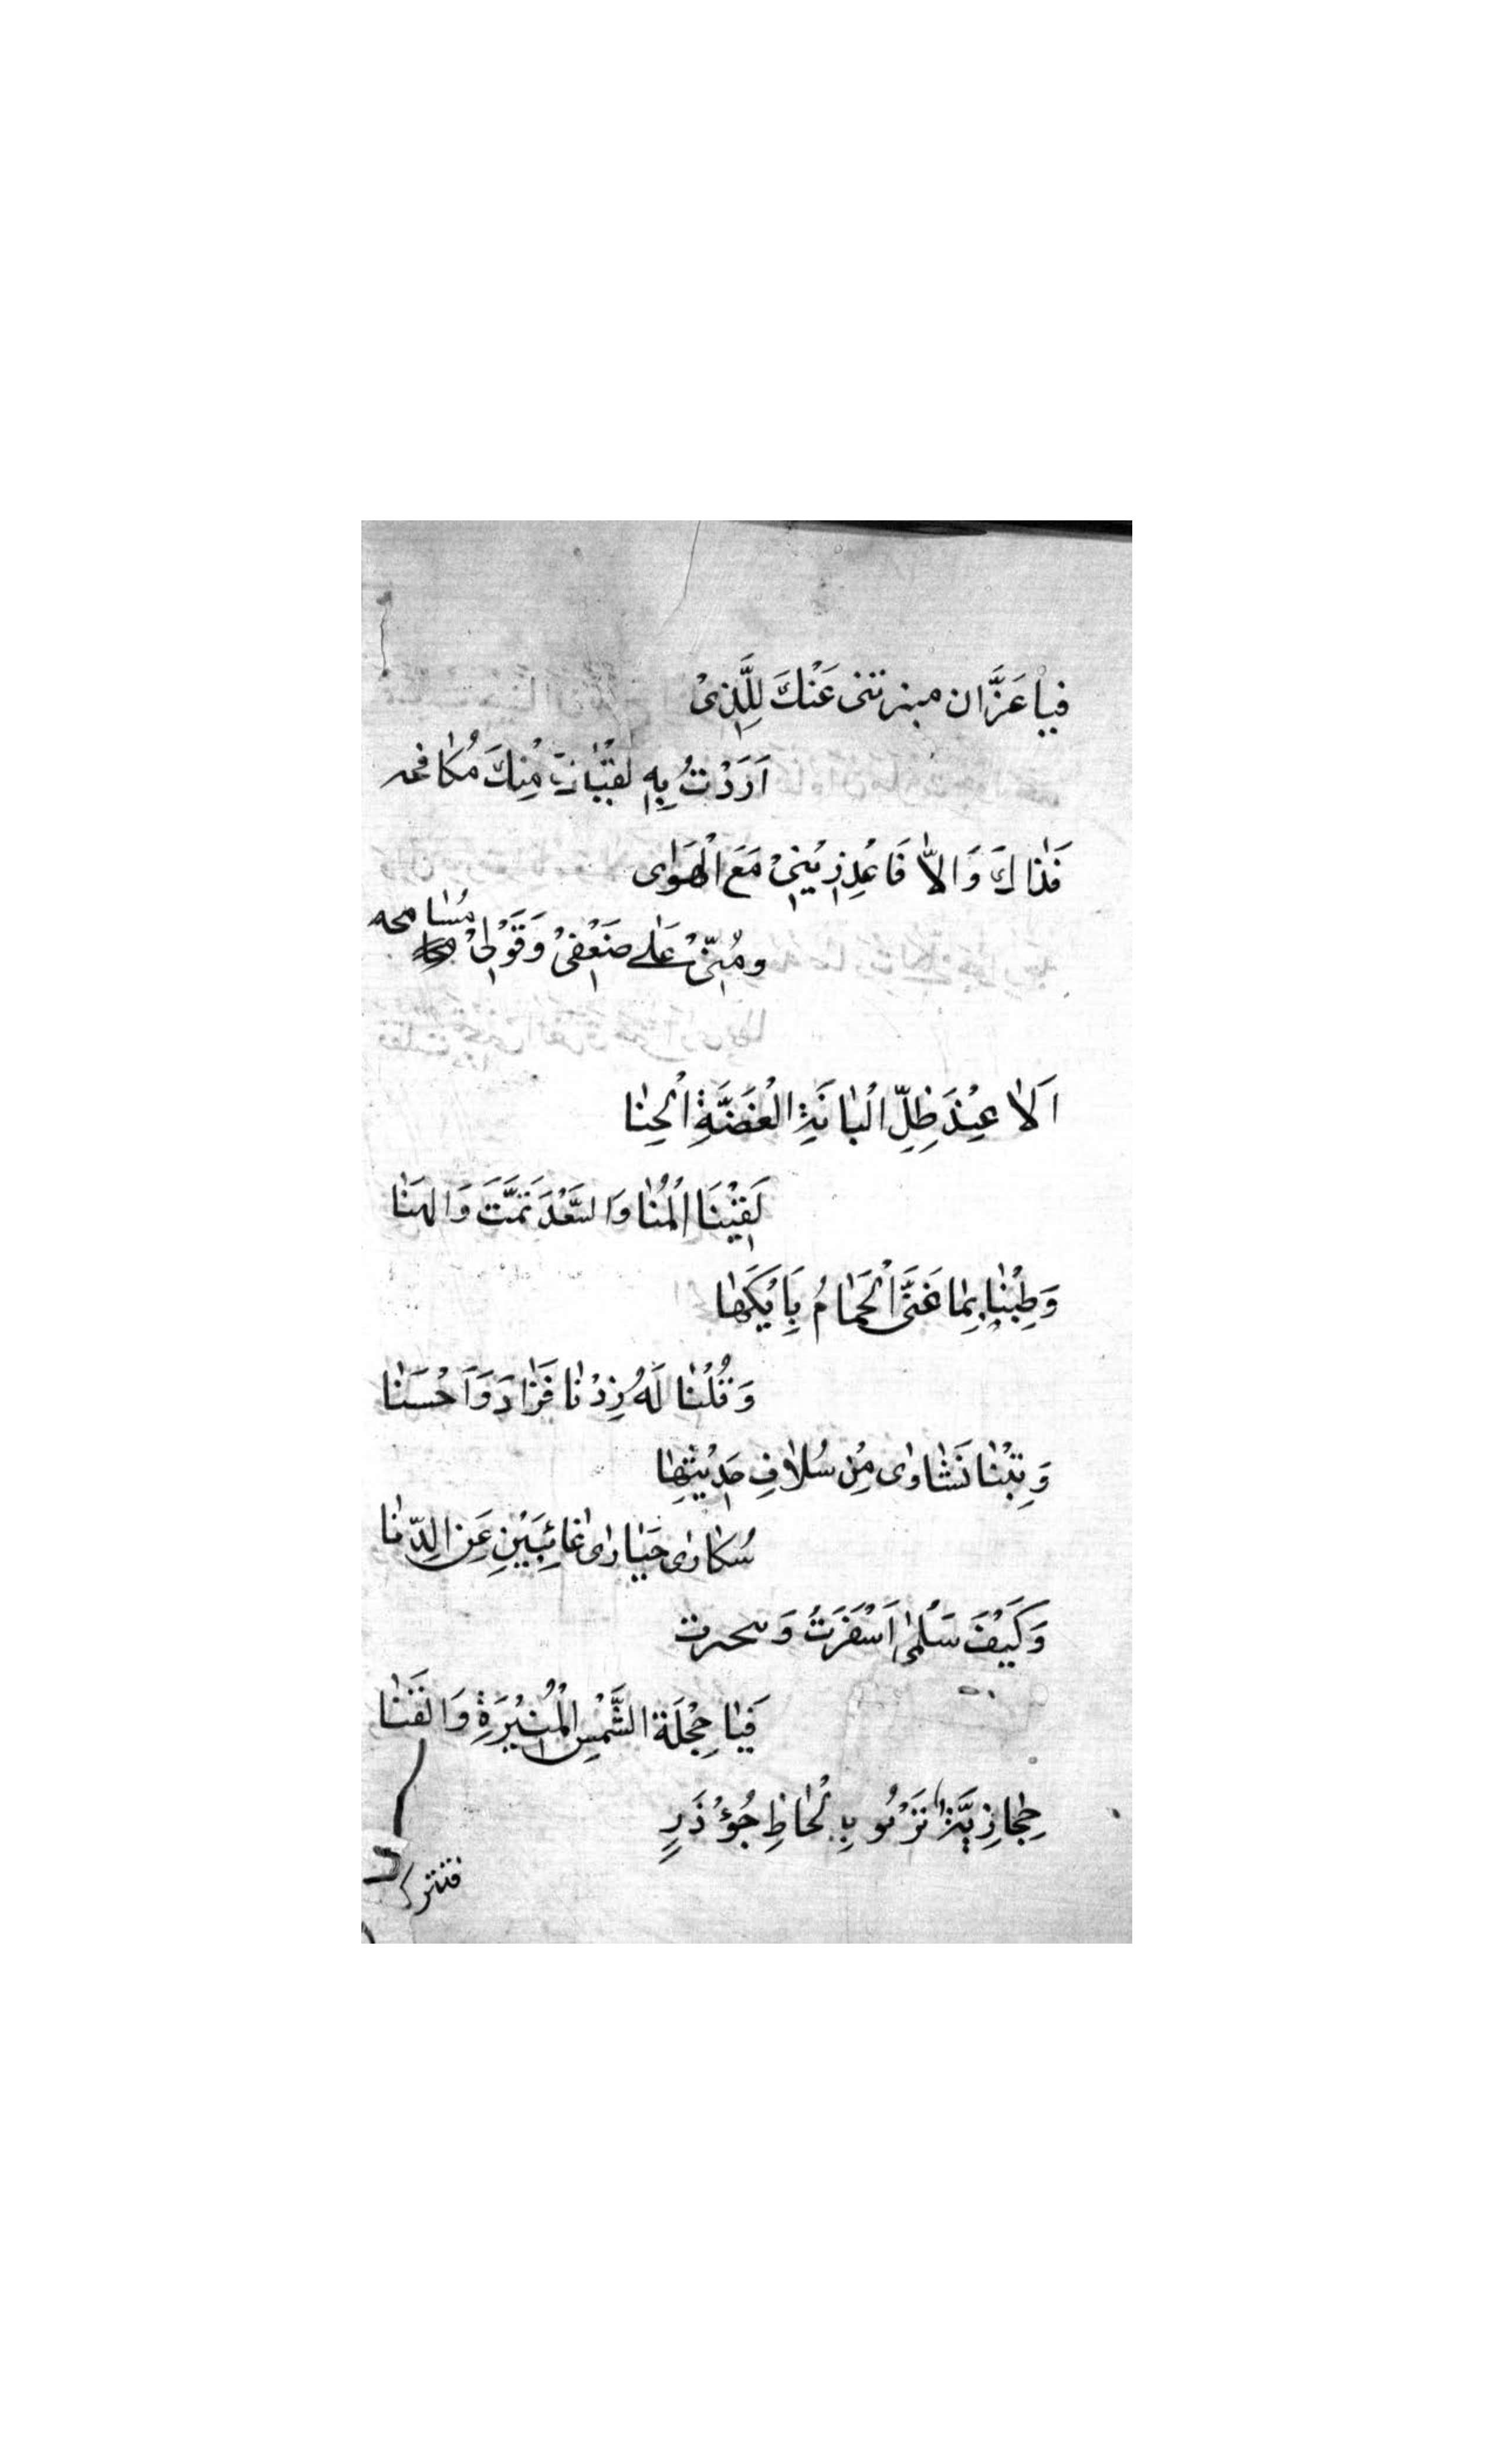 فيا عَزَّ ان ميزتنى عَنْكَ لِلَّذِىْ
اَرَدْتُ بِهِ لقيٰانَ مِنْكَ مُكافحه
فَذٰاكَ وَالاّٰ فَاعْذِرِيْنِىْ مَعَ الْهَوٰى
ومُنِّىْ عَلٰى ضَعْفِىْ وَقَوْلِىْ
مُسٰامحه
اَلاٰ عِنْدَ ظِلِّ الْبٰانَةِ الْغَضَّةِ اْلجِنٰا
لَقِيْنَا اْلمُنٰا وَالسَّعْدَ تَمَّتَ وَالهَنٰا
وَطِبْنٰا بِمٰا غَنَّى اْلحَمٰامُ بِاَيْكَهٰا
وَقُلْنٰا لَهُ زِدْنٰا فَزٰادَ وَاَحْسَنٰا
وَبِتْنٰا نَشٰاوٰى مِنْ سُلاٰفِ حَدِيْثِهٰا
سُكٰارٰى حَيٰارٰى غٰائِبَيْنِ عَنِ الدِّنٰا
وَكَيْفَ سَلْمٰى اَسْفَرَتُ وَ
فَيٰا حِجْلَةَ الشَّمْسِ الْمُنِيْرَةِ وَالقَنٰا
حِجٰازِيَّةٌ تَرْنُو بِالْحٰاظِ جُؤْذَرٍ